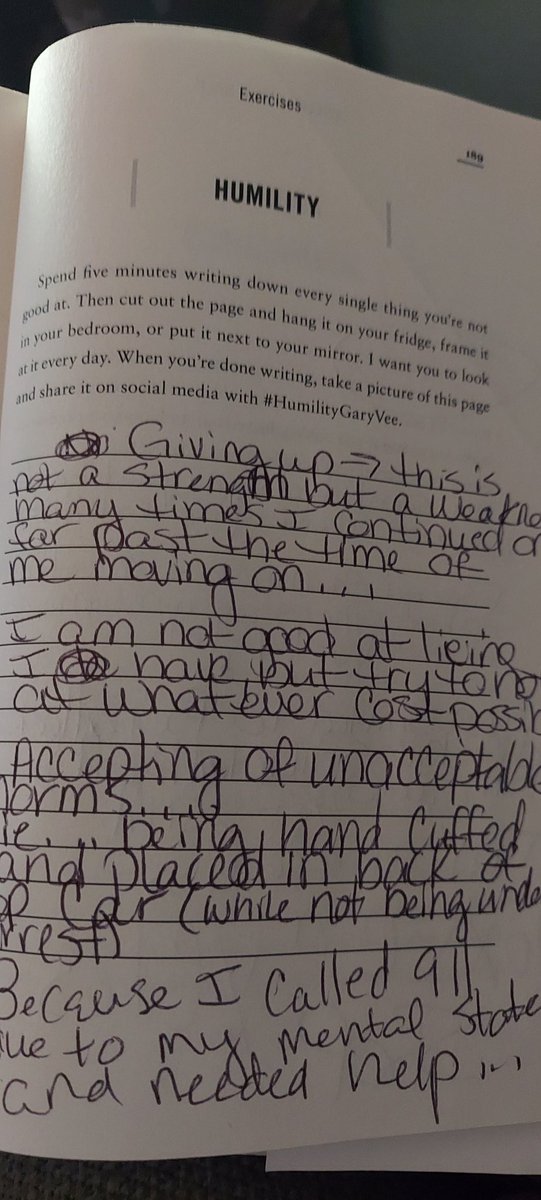 Exercises
189
HUMILITY
Spend five minutes writing down every single thing you're not
good at. Then cut out the page and hang it on your fridge, frame it
in your bedroom, or put it next to your mirror. I want you to look
at it every day. When you're done writing, take a picture of this page
and share it on social media with #HumilityGaryVee.
Giving up → this is
not a strength but a weakne
many times I continued on
far past the time of
me moving on...
I am not good at lieing
I have but try to no
at whatever cost possib
Accepting of unacceptable
norms....
ie... being hand cuffed
and placed in back of
car (while not being unde
rrest)
Because I called 911
ue to my mental state
and needed help...